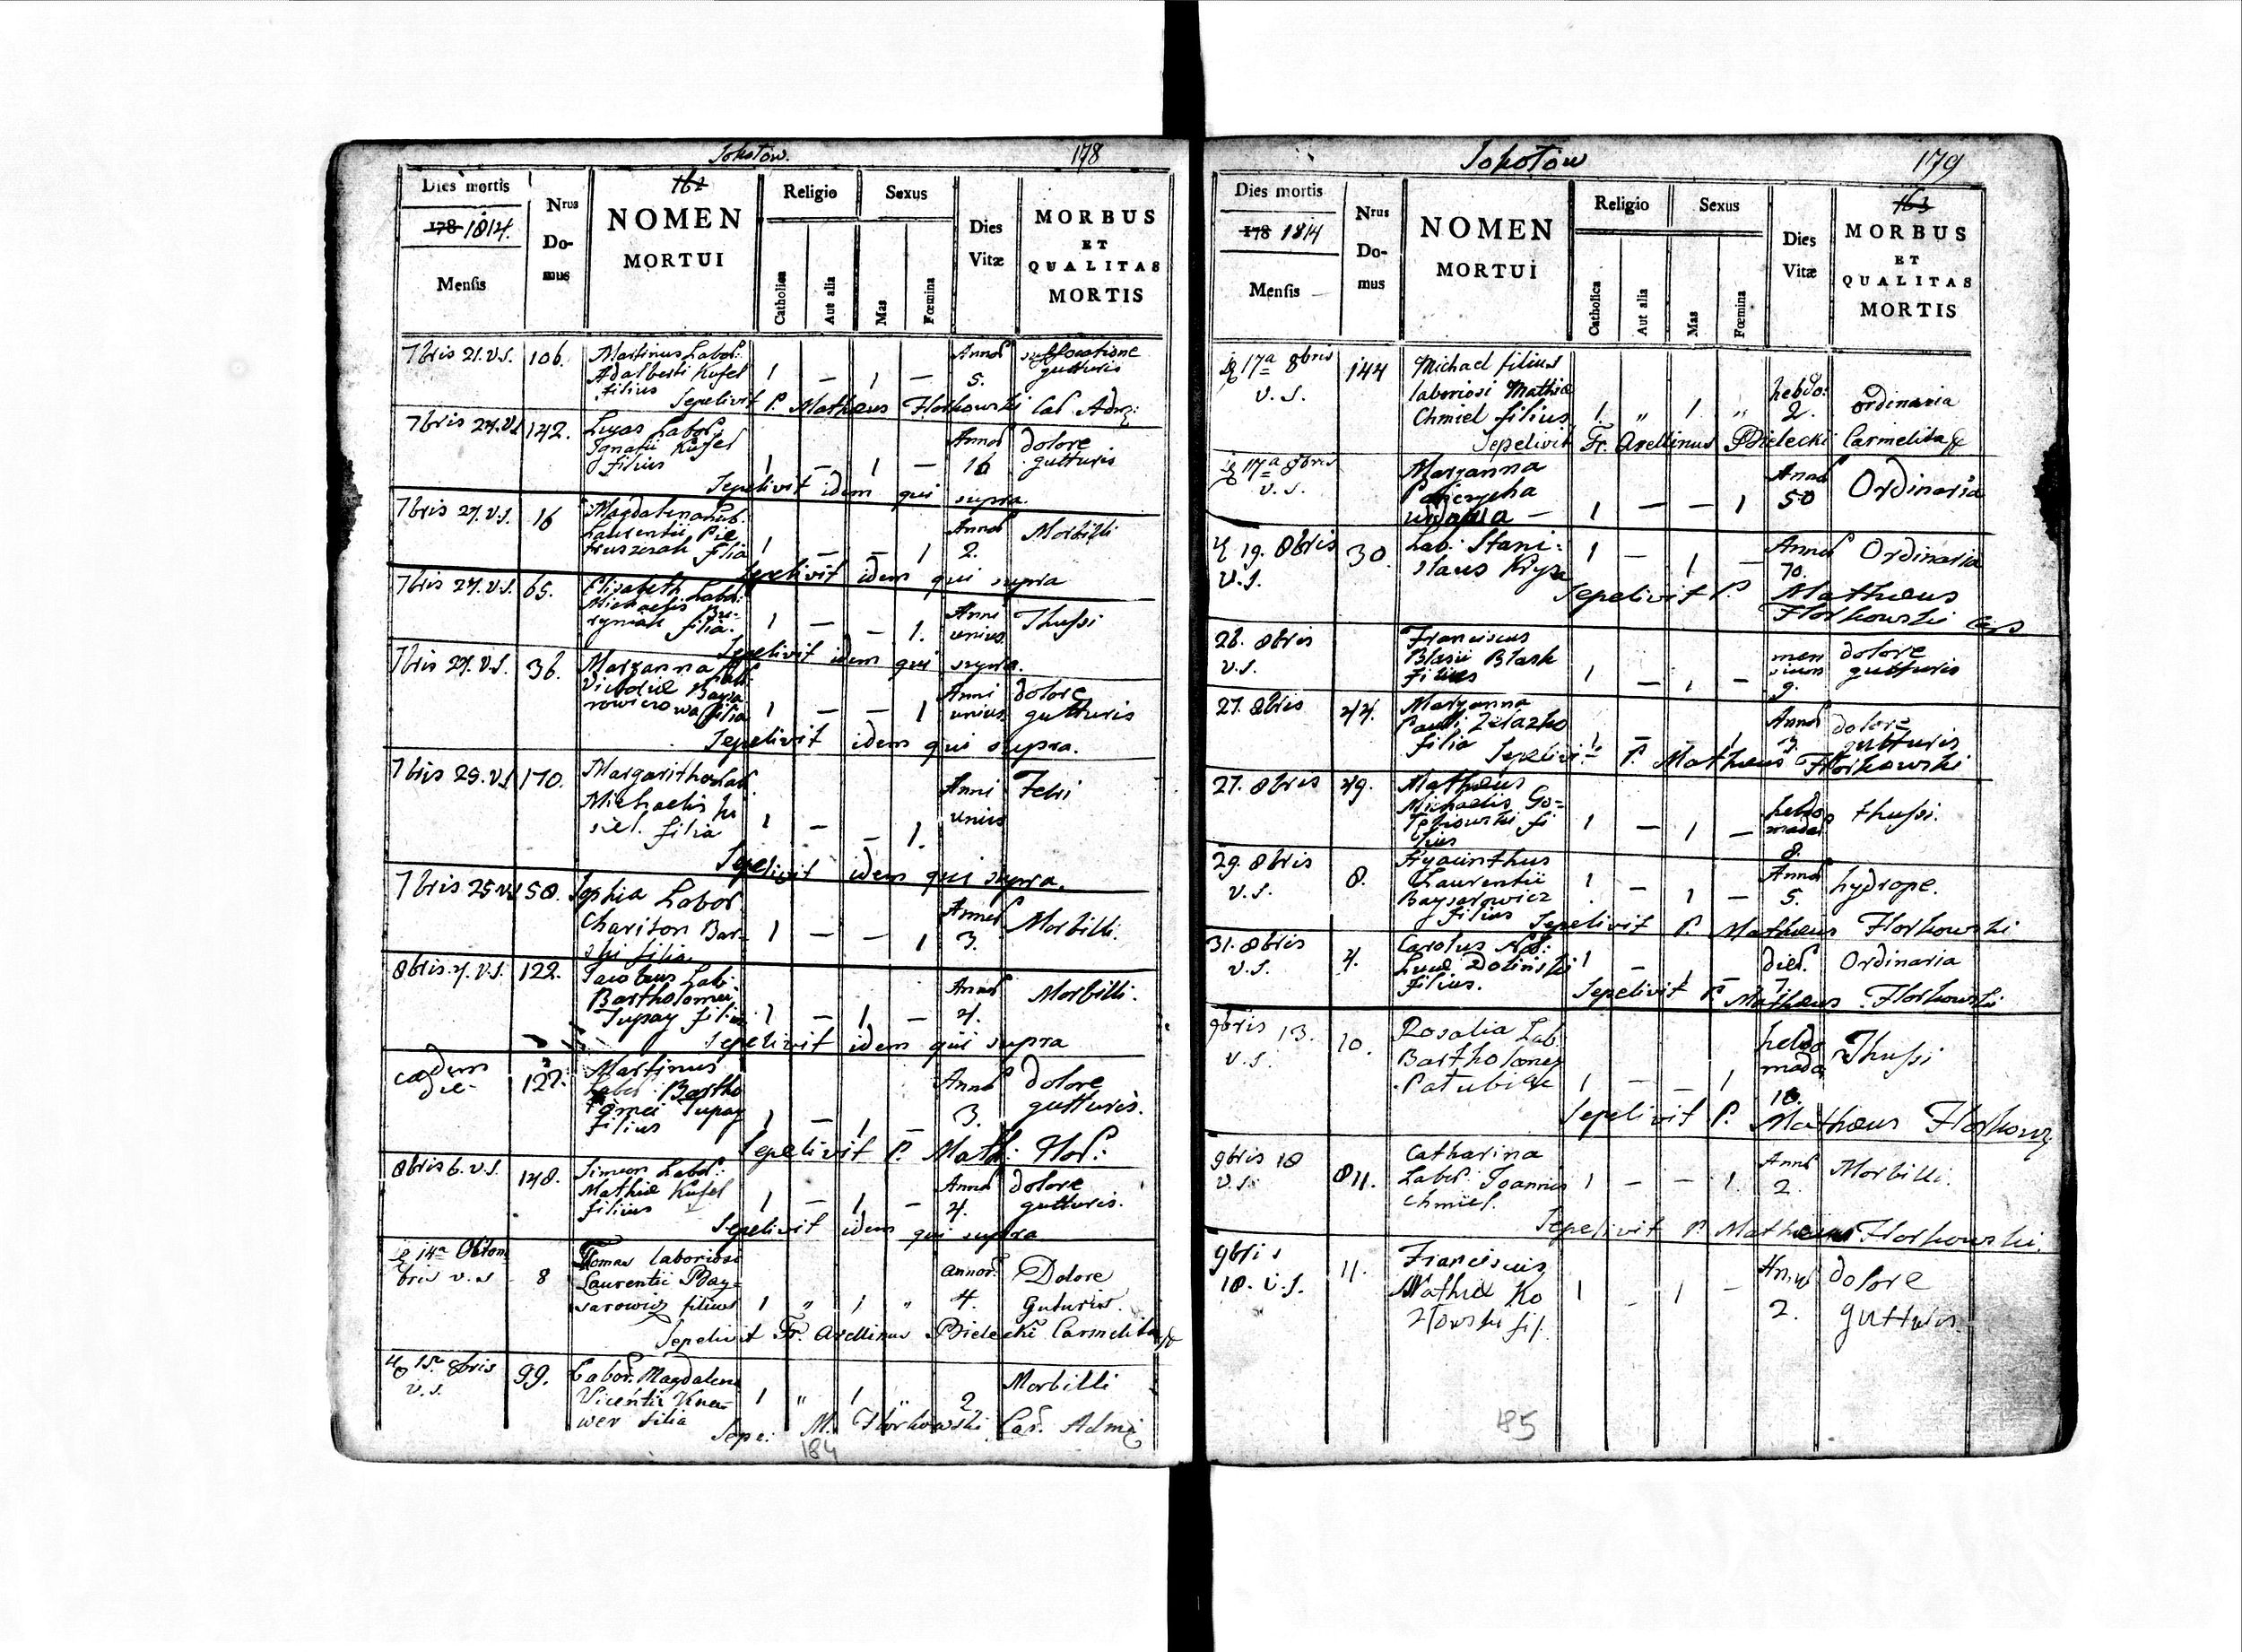 Sokołow. 178
Dies mortis
178 1814.
Mensis
Nrus Do-mus
162
NOMEN
MORTUI
Religio
Catholica
Aut alia
Sexus
Mas
Fœmina
Dies Vitæ
MORBUS
ET
QUALITAS
MORTIS
7bris 21. v.s. 106. Martinus Labor: Annor suffocatione
Adalberti Kufel 1 — 1 — 5. gutturis
filius
Sepelivit P. Mathæus Florkowski
7bris 27. v.s. 142. Lucas Labor: Annor dolore
Ignatii Kufel 16 gutturis
filius 1 — 1 —
Sepelivit idem qui supra.
7bris 27. v.s. 16 Magdalena Lab. Annor Morbilli
Laurentii Pie 2.
truszczak filia 1 — — 1
Sepelivit idem qui supra
7bris 27. v.s. 65. Elisabeth Labor: Anni Thussi
Michaelis
filia. 1 — — 1. unius
Sepelivit idem qui supra.
7bris 27. v.s. 36. Maryanna Anni dolore
filia 1 — — 1 unius gutturis
Sepelivit idem qui supra.
7bris 29. v.s. 170. Margaritha Lab. Anni Febri
Michaelis unius
filia 1 — — 1.
Sepelivit idem qui supra.
7bris 25 v.s. 50. Sophia Labor Annor Morbilli.
Chariton Bar- 1 — — 1 3.
ski filia
8bris. 4. v.s. 122. Jacobus Lab: Annor Morbilli.
Bartholomei 4.
Tupay filius 1 — 1 —
Sepelivit idem qui supra
eadem die 122. Martinus Annor dolore
Labor: Bartho 3. gutturis.
lomei Tupay
filius 1 — 1 —
Sepelivit P. Math: Flor:
8bris 6. v.s. 148. Simeon Labor: Annor dolore
Mathiæ Kufel 4. gutturis.
filius 1 — 1 —
Sepelivit idem qui supra
14a Octom
bris v.s. 8 Tomas laboriosi annor. Dolore
Laurentii Bay= 4. Guturis.
sarowicz filius 1 „ 1 „
Sepelivit Fr. Avellinus Bielecki Carmelita
15a 8bris v.s. 99. Labor. Magdalena Morbilli
Vicentii 1 „ 1 „ 2
wer filia
Sepe: M. Florkowski Car. Adm
184
Sokołow 179
Dies mortis
178 1814
Mensis
Nrus Do-mus
163
NOMEN
MORTUI
Religio
Catholica
Aut alia
Sexus
Mas
Fœmina
Dies Vitæ
MORBUS
ET
QUALITAS
MORTIS
17a 8bris 144 Michael filius
v.s. laboriosi Mathiæ hebdo:
Chmiel filius 1 „ 1 „ 2. ordinaria
Sepelivit Fr. Avellinus Bielecki Carmelita
17a 8bris Maryanna Annor
v.s. 50 Ordinaria
1 — — 1
19. 8bris 30. Lab: Stani= 1 — 1 — Annor Ordinaria
v.s. slaus Kryza 70.
Sepelivit P. Mathæus
Florkowski
26. 8bris Franciscus men dolore
v.s. Blasii Blask sium gutturis
filius 1 — 1 — 9.
27. 8bris 44. Maryanna Annor dolore
Pauli Zelazko 3. gutturis
filia 1 — 1
Sepelivit P. Mathæus Florkowski
27. 8bris 49. Mathæus hebdo thussi.
Michaelis Go= mada
filius 1 — 1 — 8.
29. 8bris 8. Hyacinthus Annor hydrope.
v.s. Laurentii 1 — 1 — 5.
Baysarowicz
filius
Sepelivit P. Mathæus Florkowski
31. 8bris 4. Carolus Nob: dier. Ordinaria
v.s. Lucæ Dolinski 1 — 1 — 7.
filius.
Sepelivit P. Mathæus Florkowski
9bris 13. 10. Rosalia Lab. hebdo Thussi
v.s. Bartholomei mada
1 — — 1 10.
Sepelivit P. Mathæus Florkow
9bris 18 Catharina Annor Morbilli.
v.s. Labor: Joannis 1 — — 1 2.
Chmiel.
Sepelivit P. Mathæus Florkowski.
9bris 11. Franciscus Annor dolore
18. v.s. Mathiæ Ko 1 — 1 — 2. gutturis.
złowski fil.
185